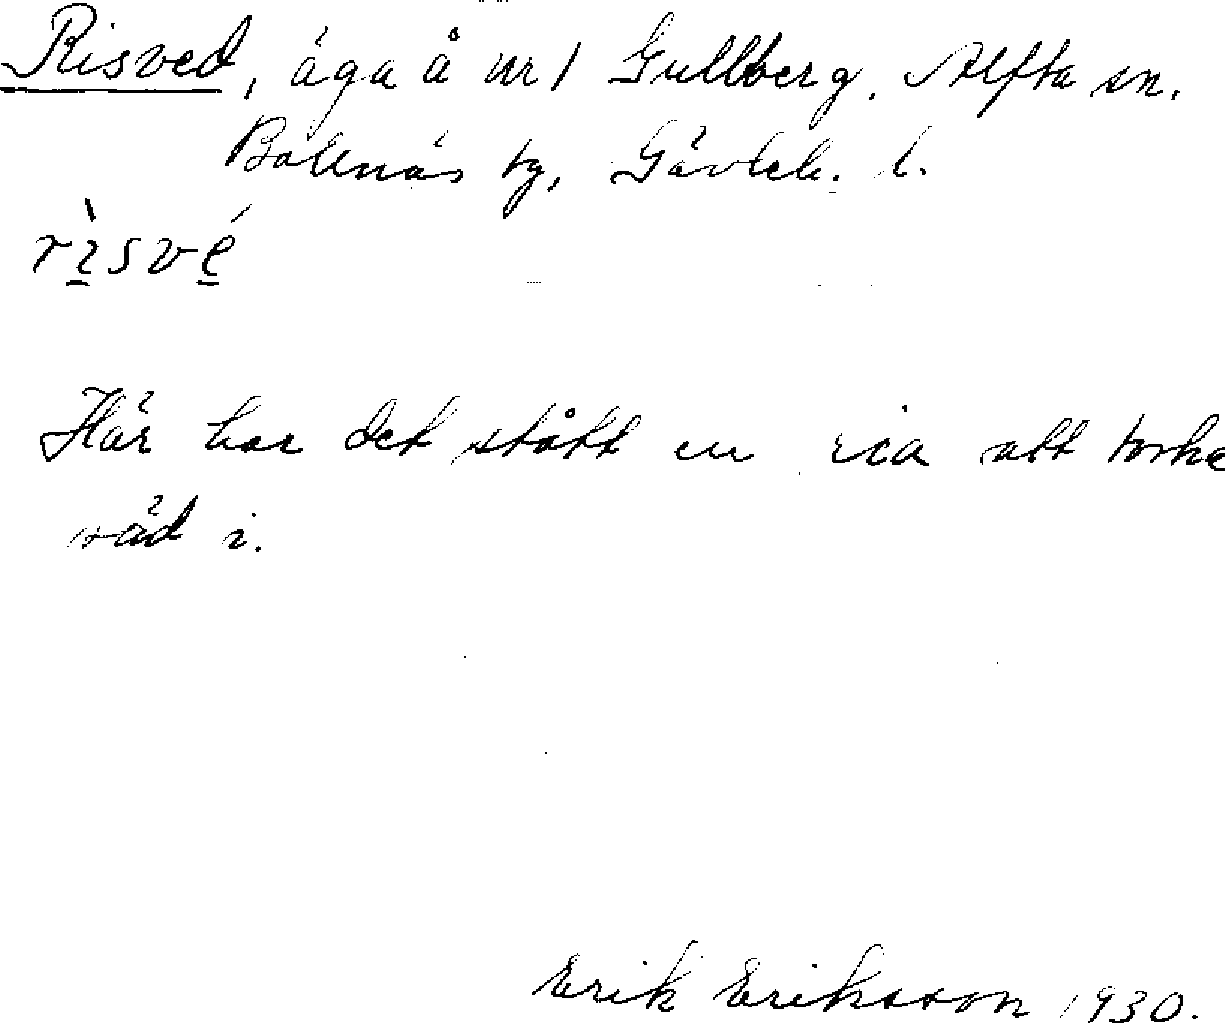 Risved, äga å nr 1 Gullberg. Alfta sn.
Bollnäs tg, Gävleb. l.
rìsvé
Här har det stått en ria att torka
säd i.
Erik Eriksson 1930.